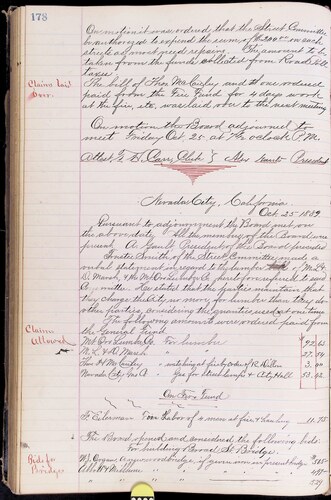 178
On motion it was ordered that the Street Committee
be authorized to expend the sum of $200.00 on such
streets as most need repairs. The amount to be
taken from the funds collected from Road Poll
taxes.
Claims laid
over.
The bill of Thos McCauley and the one ordered
paid from the Fire Fund for 4 days work
at the fire, etc, was laid over to the next meeting
On motion the Board adjourned to
meet Friday Oct. 25 at 7½ o'clock P.M.
Attest T. H. Carr, Clerk Alex Gault President
Nevada City, California
Oct 25 1889.
Pursuant to adjournment the Board met on
the above date. All the members of the Board were
present. A Gault, President of the Board presided
Trustee Smith of the Street Committee made a
verbal statement in regard to the lumber of M. L. &
D. Marsh, & the Mt Oro Lumber Co
matter. He stated that the parties maintain that
they charge the City no more for lumber than they do
other parties, considering the quantities used at one time.
Claims
Allowed
The following amounts were ordered paid from
the General Fund.
Mt Oro Lumber Co. For lumber $
M. L. & D. Marsh " " 27.54
Thos H McCauley
Nevada City Gas Co. " Gas for street lamps & City Hall
On Fire Fund
For labor of men at fire & hauling 11.75
Bids for
Bridge
The Board opened and considered the following bids
for building Broad St Bridge.